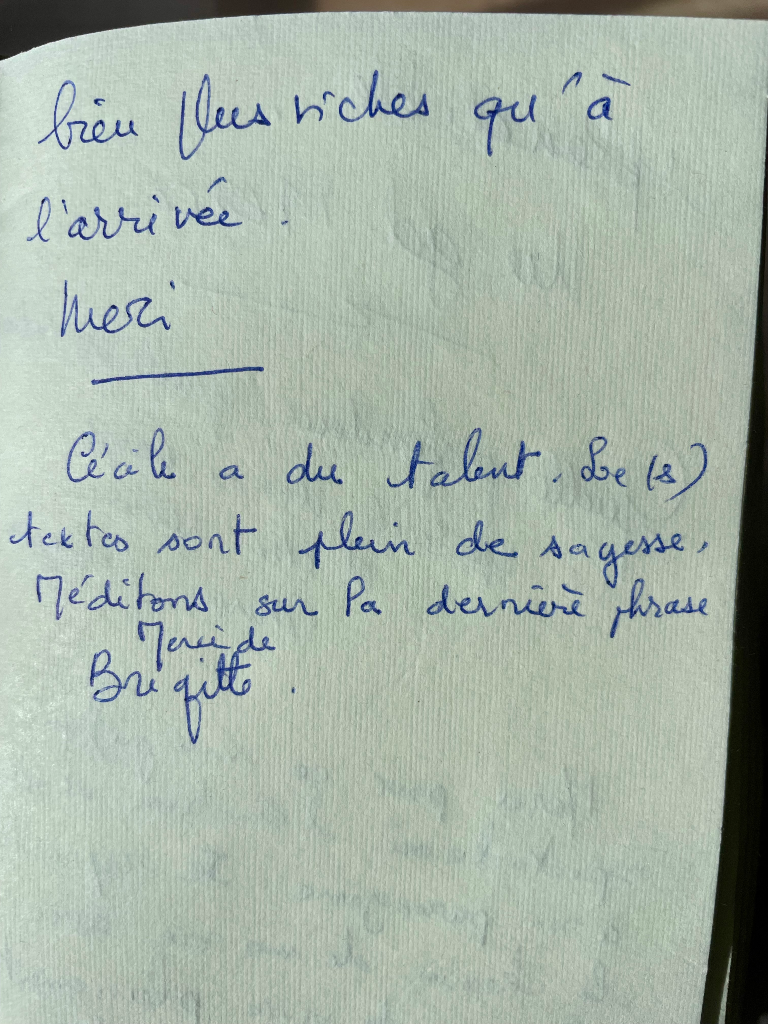 bien plus riches qu'à
l'arrivée.
Merci
Cécile a du talent. Le(s)
textes sont plein de sagesse.
Méditons sur la dernière phrase
Merci de
Brigitte.